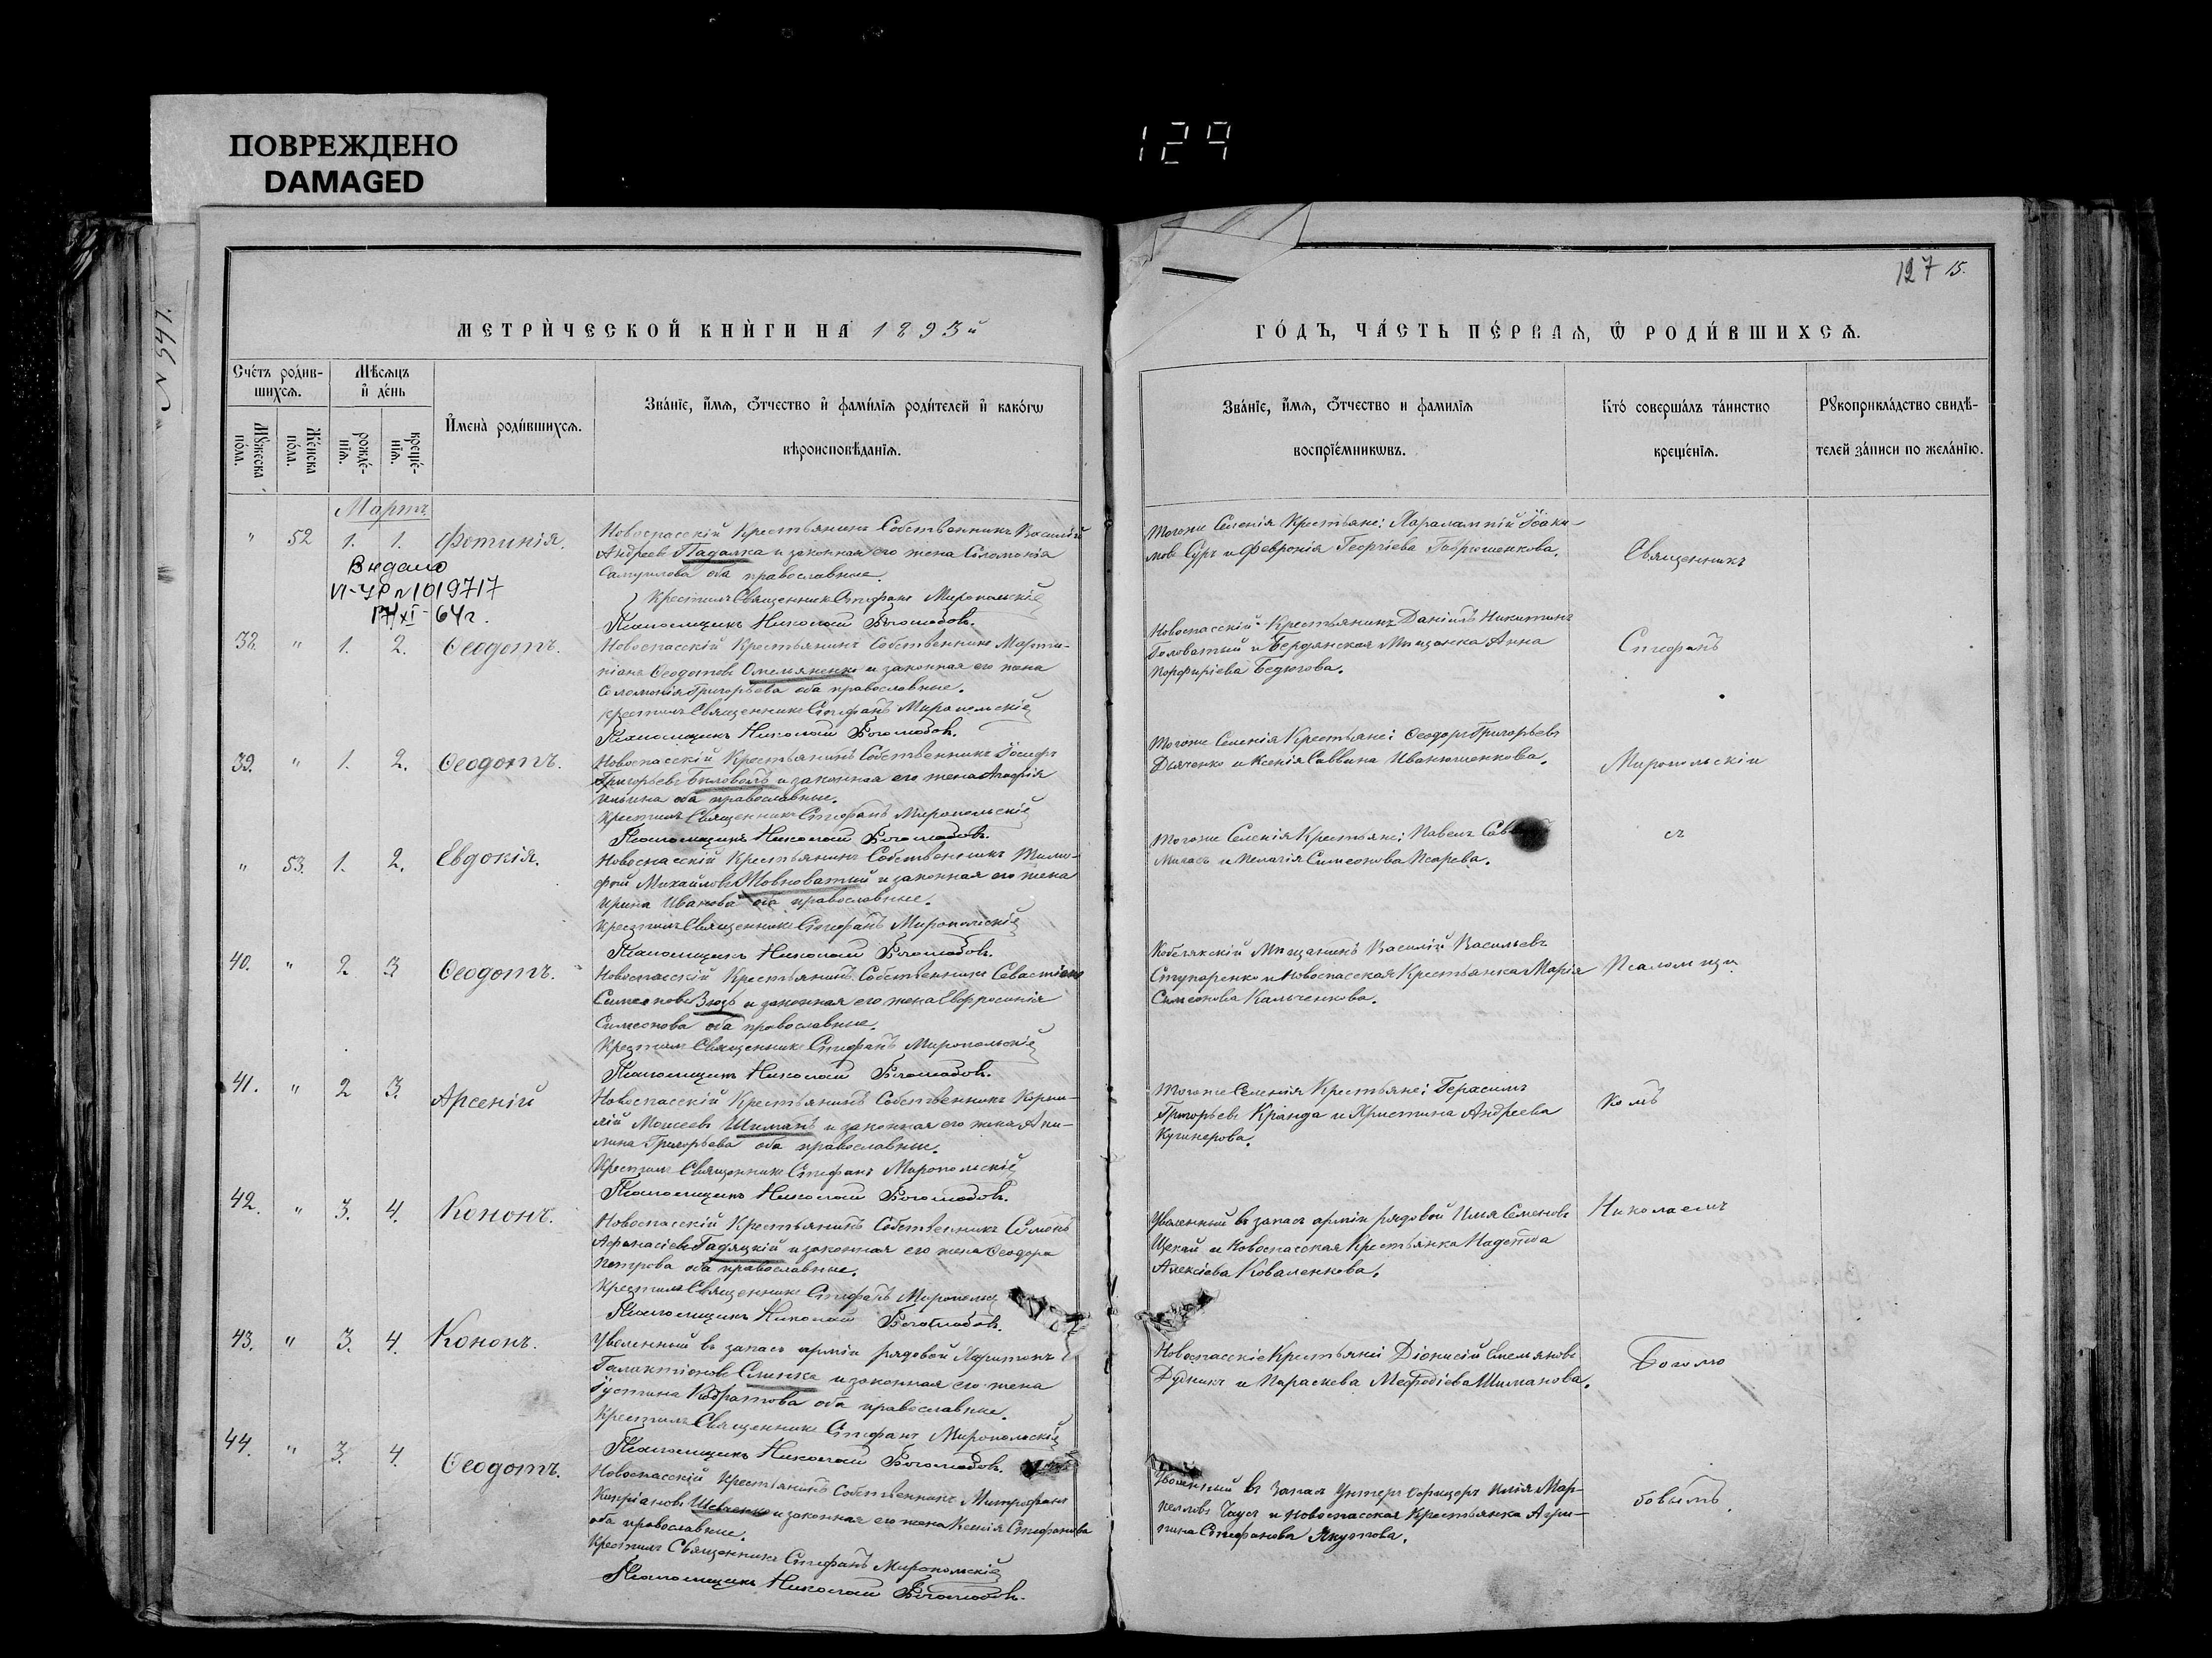 ПОВРЕЖДЕНО
DAMAGED
129
N 547.
127 15.
МЕТРИ́ЧЕСКОЙ КНИ́ГИ НА 1893й
ГО́ДЪ, ЧА́СТЬ ПЕ́РВАЯ, Ѡ РОДИ́ВШИХСЯ.
Сче́тъ роди́в-
шихсѧ.
Мꙋжеска по́ла.
Же́нска по́ла.
Мѣ́сяцъ
и҆ де́нь
рожде́-
нїѧ.
креще́-
нїѧ.
И҆мена̀ роди́вшихсѧ.
Зва́нїе, и҆́мѧ, ѻ҆́тчество и҆ фами́лїѧ роди́телей и҆ како́гѡ
вѣроисповѣ́данїѧ.
Зва́нїе, и҆́мѧ, ѻ҆́тчество и фами́лїѧ
воспрїе́мникѡвъ.
Кто̀ соверша́лъ та́инство
креще́нїѧ.
Рꙋкоприкла́дство свидѣ́-
телей за́писи по жела́нїю.
Мартъ
" 52 1. 1. Фотинія.
Видано
VI-УР № 1019717
17/XI-64г.
Новоспасскій Крестьянинъ Собственникъ Василій
Андреевъ Падалка и законная его жена Соломонія
Самуилова оба православные.
Крестилъ Священникъ Стефанъ Миропольскій
Псаломщикъ Николай Боголюбовъ.
Тогоже Селенія Крестьяне: Харалампій Іоаки-
мовъ Суръ и Феврокія Георгіева Гаврюшенкова.
Священникъ
38. " 1. 2. Ѳеодотъ.
Новоспасскій Крестьянинъ Собственникъ Марти-
ніанъ Ѳеодотовъ Омельяненко и законная его жена
Соломонія Григорьева оба православные.
Крестилъ Священникъ Стефанъ Миропольскій
Псаломщикъ Николай Боголюбовъ.
Новоспасскій Крестьянинъ Даніилъ Никитинъ
Головатый и Бердянская Мѣщанка Анна
Порфиріева Бедюгова.
Стефанъ
39. " 1. 2. Ѳеодотъ.
Новоспасскій Крестьянинъ Собственникъ Іосифъ
Григорьевъ Биловолъ и законная его жена Агафія
Ильина оба православные.
Крестилъ Священникъ Стефанъ Миропольскій
Псаломщикъ Николай Боголюбовъ.
Тогоже Селенія Крестьяне: Ѳеодоръ Григорьевъ
Дьяченко и Ксенія Саввина Иванюшенкова.
Миропольскій
" 53. 1. 2. Евдокія.
Новоспасскій Крестьянинъ Собственникъ Тимо-
фей Михайловъ Товковатый и законная его жена
Ирина Иванова оба православные.
Крестилъ Священникъ Стефанъ Миропольскій
Псаломщикъ Николай Боголюбовъ.
Тогоже Селенія Крестьяне: Павелъ
и Пелагія Симеонова Псарева.
съ
40. " 2. 3 Ѳеодотъ.
Новоспасскій Крестьянинъ Собственникъ Севастіанъ
Симеоновъ Вюзъ и законная его жена Евфросинія
Симеонова оба православные.
Крестилъ Священникъ Стефанъ Миропольскій
Псаломщикъ Николай Боголюбовъ.
Кобелякскій Мѣщанинъ Василій Васильевъ
Ступаренко и Новоспасская Крестьянка Марія
Симеонова Кальченкова.
Псаломщи
41. " 2 3. Арсеній
Новоспасскій Крестьянинъ Собственникъ Корни-
лій Моисеевъ Шиманъ и законная его жена Аки-
лина Григорьева оба православные.
Крестилъ Священникъ Стефанъ Миропольскій
Псаломщикъ Николай Боголюбовъ.
Тогоже Селенія Крестьяне: Герасимъ
Григорьевъ Кранда и Христина Андреева
Кушнерова.
комъ
42. " 3. 4. Кононъ.
Новоспасскій Крестьянинъ Собственникъ Симонъ
Афанасіевъ Гадяцкій и законная его жена Ѳеодора
Петрова оба православные.
Крестилъ Священникъ Стефанъ Миропольс
Псаломщикъ Николай Боголюбовъ.
Уволенный въ запасъ арміи рядовой Илья Семеновъ
Щекай и Новоспасская Крестьянка Надежда
Алексіева Коваленкова.
Николаемъ
43. " 3. 4. Кононъ.
Уволенный въ запасъ арміи рядовой Харитонъ
Галактіоновъ Слинка и законная его жена
Іустина Кодратова оба православные.
Крестилъ Священникъ Стефанъ Миропольскій
Псаломщикъ Николай Боголюбовъ.
Новоспасскіе Крестьяне: Діонисій Емельяновъ
Дудникъ и Параскева Мефодіева Шиманова.
Боголю
44. " 3. 4. Ѳеодотъ.
Новоспасскій Крестьянинъ Собственникъ Митрофанъ
Кипріановъ Шевченко и законная его жена Ксенія Стефанова
оба православные.
Крестилъ Священникъ Стефанъ Миропольскій
Псаломщикъ Николай Боголюбовъ.
Уволенный въ запасъ Унтеръ Офицеръ Илія Мар-
келловъ Чаусъ и Новоспасская Крестьянка Агри-
пина Стефанова Якутова.
бовымъ.